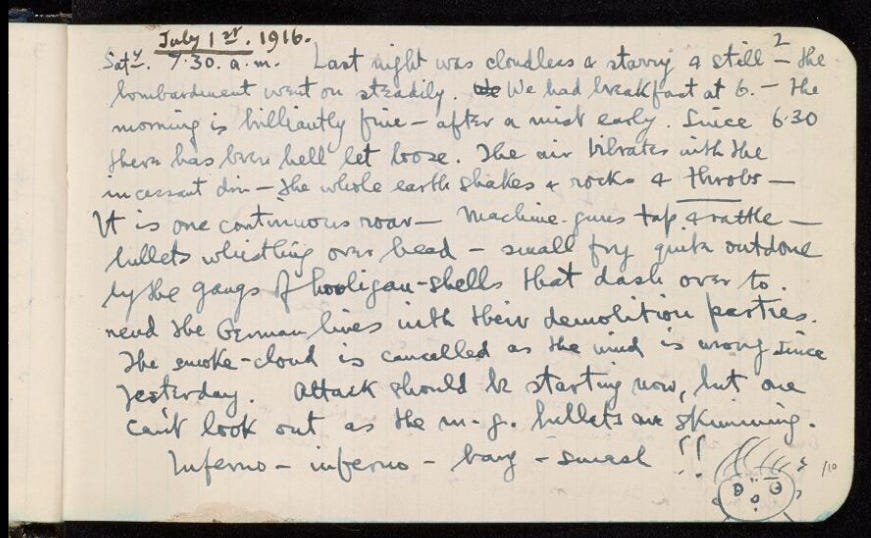 July 1st. 1916.
2
Saty. 7.30. a.m. Last night was cloudless & starry & still – the
bombardment went on steadily. We We had breakfast at 6. – the
morning is brilliantly fine – after a mist early. Since 6.30
there has been hell let loose. The air vibrates with the
incessant din – the whole earth shakes & rocks & throbs –
It is one continuous roar – Machine-guns tap & rattle –
bullets whistling over head – small fry quite outdone
by the gangs of hooligan-shells that dash over to
rend the German lines with their demolition parties.
The smoke-cloud is cancelled as the wind is wrong since
yesterday. Attack should be starting now, but one
can't look out as the m-g. bullets are skimming.
Inferno – inferno – bang – smash !!
/10